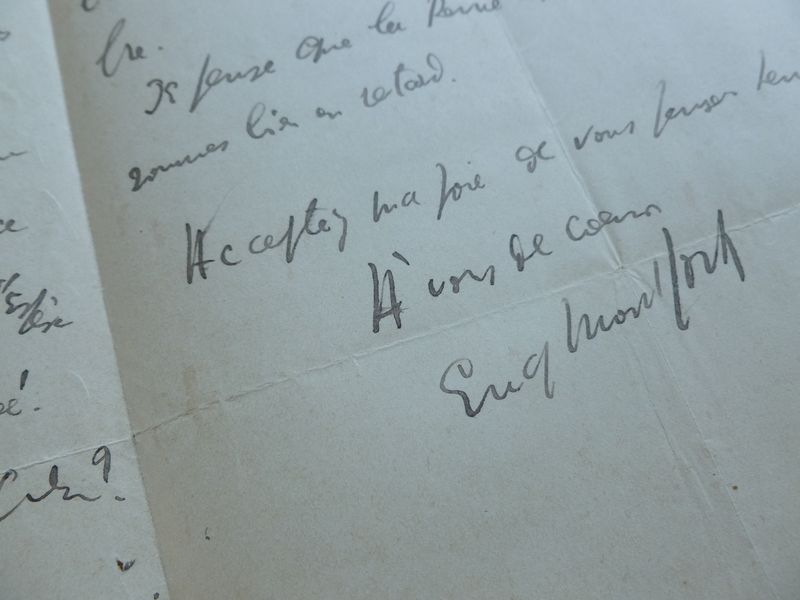 bre.
Je pense que la Revue
sommes bien en retard.
Acceptez ma joie de vous penser
À vous de coeur
Eug Montfort